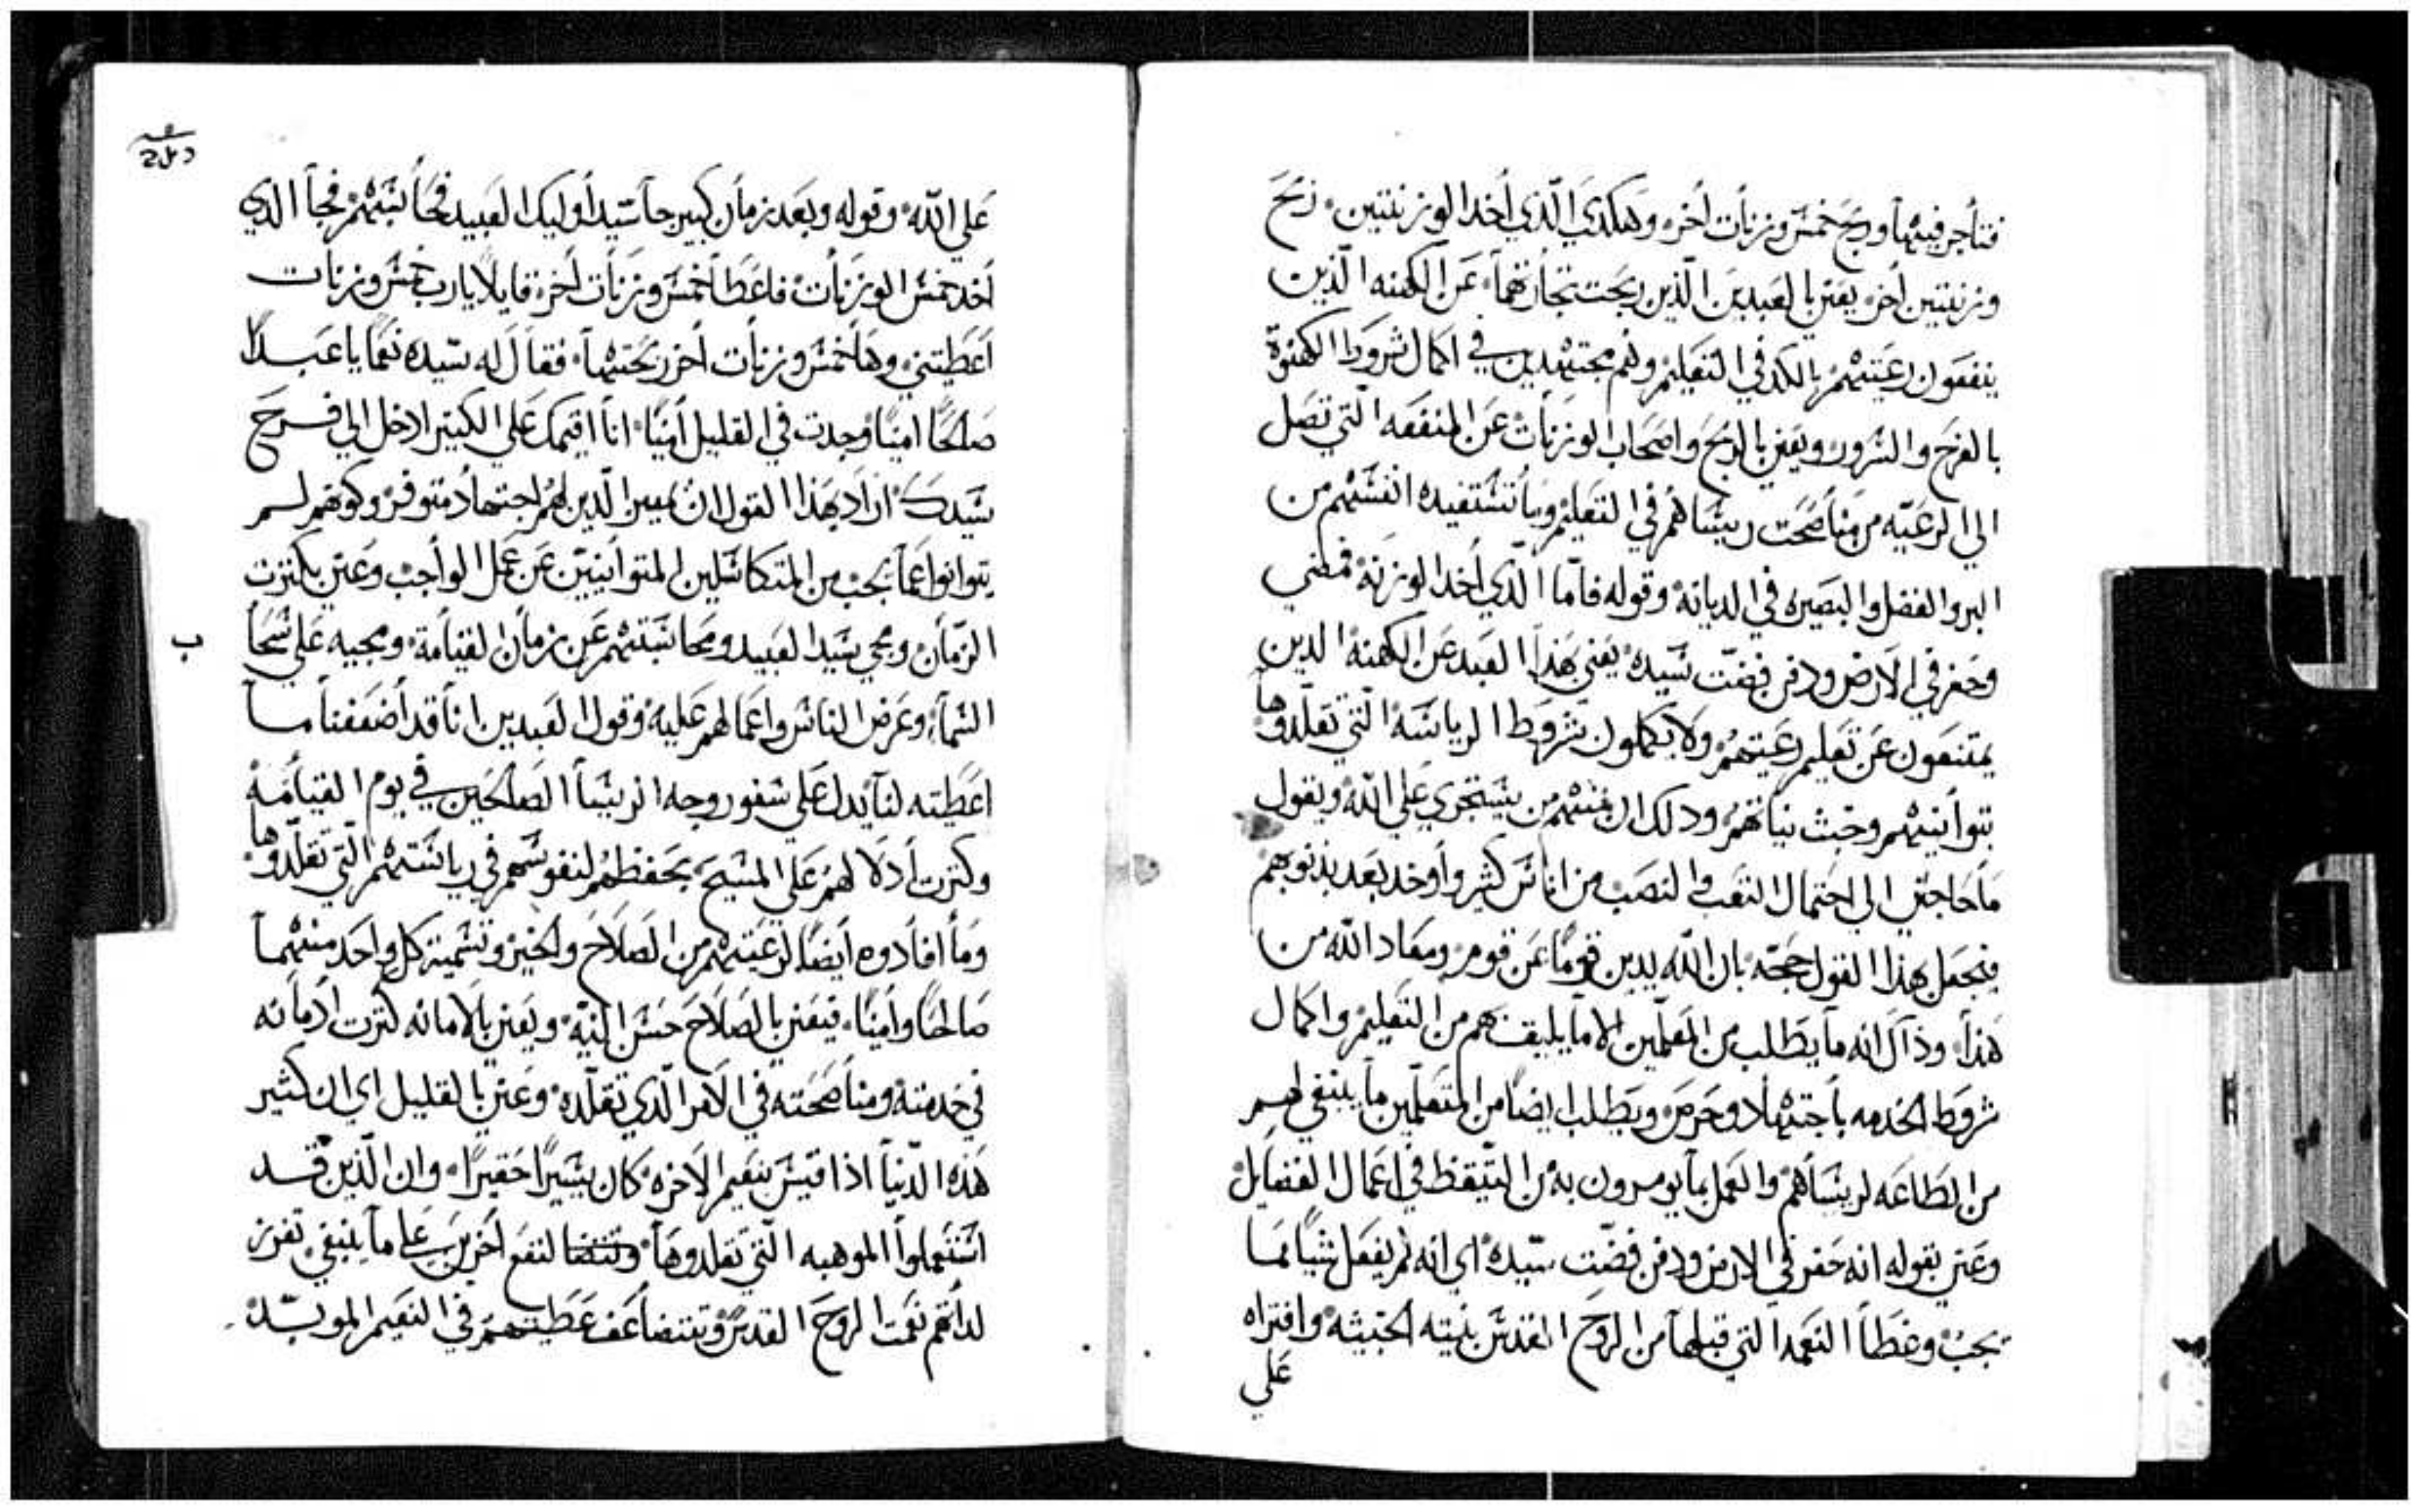 فتأجر فيهما وربح خمس وزنات أخر، وهكذي الذي أخد الوزنتين، ربح
وزنتين أخر، يعني بالعبدين الذين ربحت تجارتهما، عن الكهنه الذين
ينفعون رعيتهم بالكد في التعليم وهم مجتهدين في اكمال شروط الكهنوة
بالفرح والسرور، ويعني بالربح واصحاب الوزنات عن المنفعه التي تصل
الي الرعيه من مناصحت ريساهم في التعليم وما تستفيده انفسهم من
البر والفضل والبصيره في الديانة وقوله فاما الذي أخد الوزنة فمضي
وحفر في الارض ودفن فضت سيده يعني بهذا العبد عن الكهنة الدين
يمتنعون عن تعليم رعيتهم ولا يكملون شروط الرياسة التي تقلدوها
بتوأنيهم وخبث نياتهم ودلك ان منهم من يستجري علي الله ويقول
ما حاجتي الي احتمال التعب والنصب من اناس كثير وأوخد بعد بذنوبهم
فيجعل بهذا القول حجة بان الله يدين قومًا عن قوم ومعاد الله من
هذا وذاك انه ما يطلب من المعلمين الا ما يليق بهم من التعليم واكمال
شروط الخدمه بأجتهاد وحرص ويطلب ايضًا من المتعلمين ما ينبغي لهم
من الطاعه لريساهم والعمل بما يومرون به من التيقظ في اعمال الفضايل
وعني بقوله انه حفر في الارض ودفن فضت سيده اي انه لم يفعل شيًا مما
يجب وغطا النعمه التي قبلها من الروح المقدس بنيته الخبيثه وافتراه
علي
علي الله وقوله وبعد زمان كبير جا سيد أوليك العبيد فحاسبهم فجا الدي
أخد خمس الوزنات فاعطا خمس وزنات أخر قايلاً يارب خمس وزنات
أعطيتني وها خمس وزنات أخر ربحتها فقال له سيده نعمًا يا عبدًا
صالحًا امينًا وجدت في القليل أمينًا انا اقيمك علي الكتير ادخل الي فرح
سيدك اراد بهذا القول ان يميز الدين لهم اجتهاد متوفر وكونهم لم
يتوانوا عما يجب من المتكاسلين المتوانيين عن عمل الواجب وعني بكترت
الزمان ومجي سيد العبيد ومحاسبتهم عن زمان القيامة ومجيه علي سحا
ب
السما، وعرض الناس واعمالهم عليه وقول العبدين انا قد أضعفنا ما
اعطيته لنا يدل علي سفور وجه الريسا الصالحين في يوم القيامة
وكترت أدلالهم علي المسيح بحفظهم لنفوسهم في رياستهم التي تقلدوها
وما افادوه أيضًا لرعيتهم من الصلاح والخير وتسمية كل واحد منهما
صالحًا وأمينًا، فيعني بالصلاح حسن النية ويعني بالامانه كترت ادمانه
في خدمته ومناصحته في الامر الدي تقلده وعني بالقليل اي ان كثير
هذه الدنيا اذا قيس بنعيم الاخره كان يسيرًا حقيرًا وان الذين قد
استعملوا الموهبه التي تقلدوها لنفع أخرين علي ما ينبغي تغزر
لدانهم نعمت الروح القدس وتتضاعف عطيتهم في النعيم الموبد